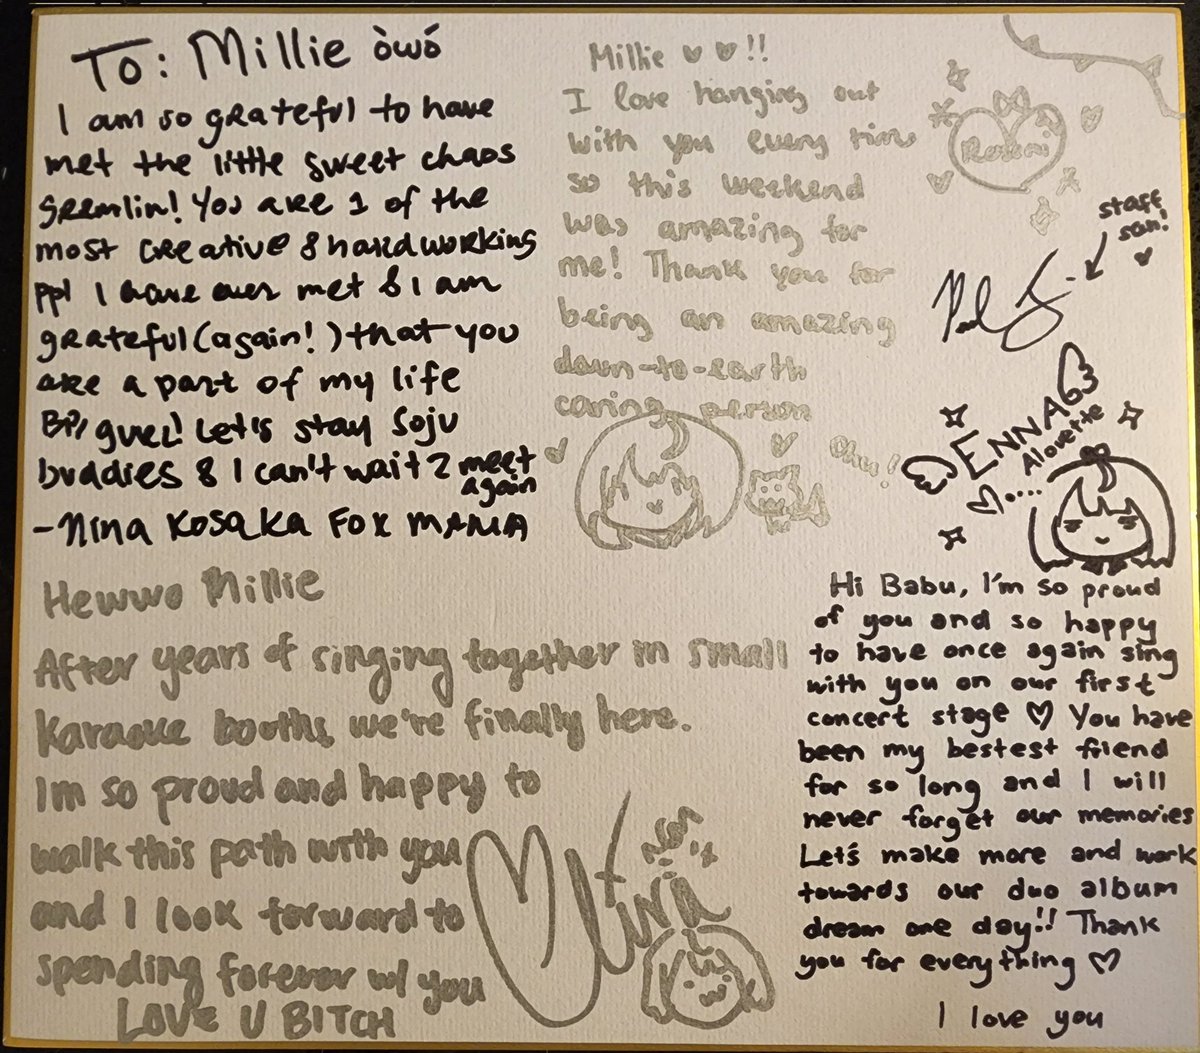 To: Millie òwó
I am so grateful to have
met the little sweet chaos
gremlin! You are 1 of the
most creative & hardworking
ppl I have ever met & I am
grateful (again!) that you
are a part of my life
Let's stay Soju
buddies & I can't wait 2 meet
again
-Nina Kosaka FOX MAMA
Millie ♡ ♡ !!
I love hanging out
with you every time
so this weekend
was amazing for
me! Thank you for
being an amazing
down-to-earth
caring person
Chu!
Rosemi
staff
san!
♡
ENNA
Alouette
Hi Babu, I'm so proud
of you and so happy
to have once again sing
with you on our first
concert stage ♡ You have
been my bestest friend
for so long and I will
never forget our memories
Let's make more and work
towards our duo album
dream one day!! Thank
you for everything ♡
I love you
Hewwo Millie
After years of singing together in small
karaoke booths, we're finally here.
Im so proud and happy to
walk this path with you
and I look forward to
spending forever w/ you
LOVE U BITCH